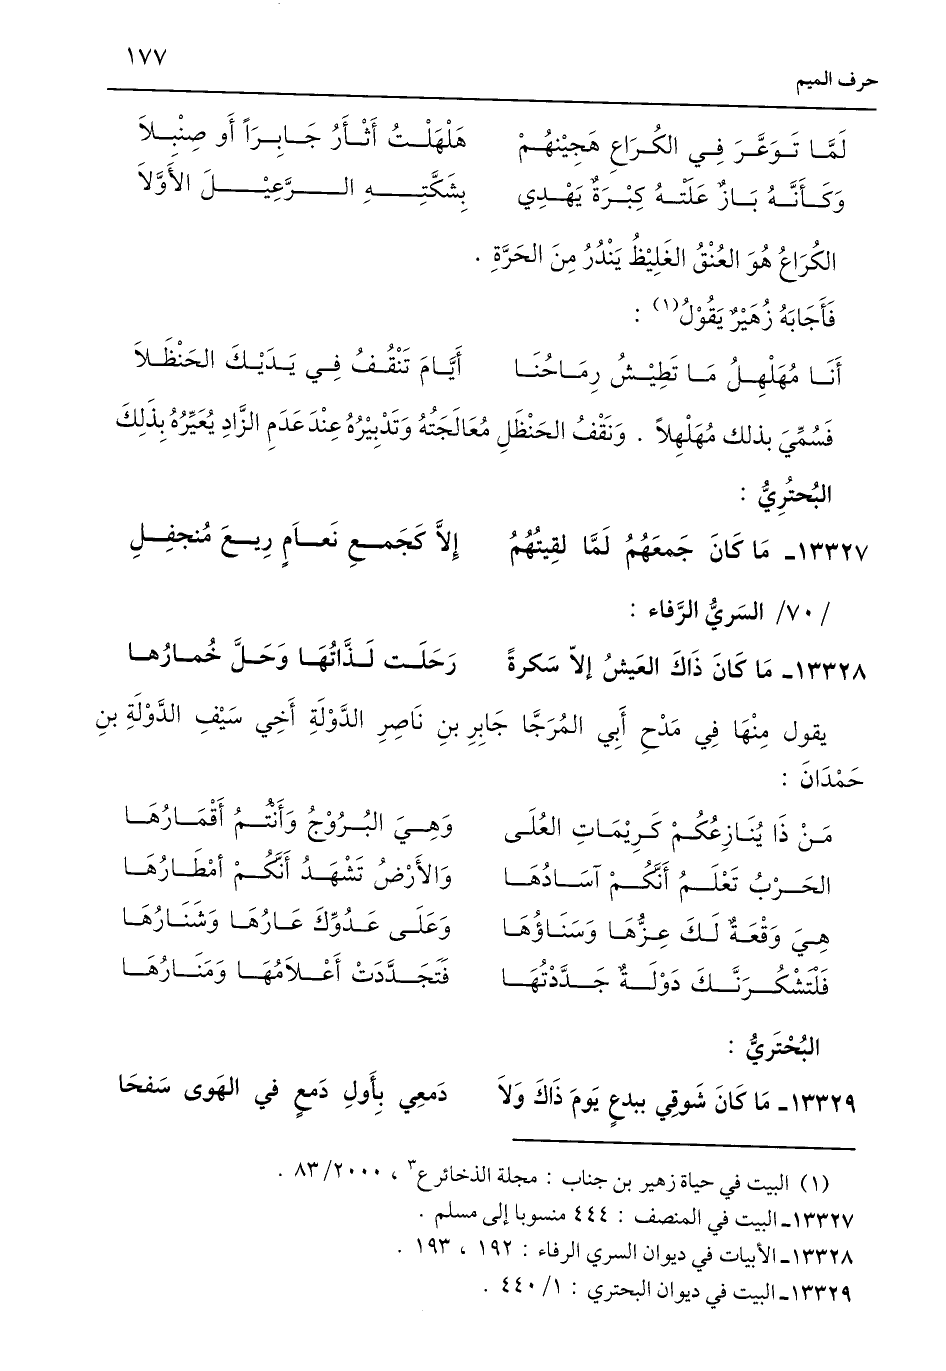 ١٧٧
حرف الميم
لَمَّا تَوَعَّرَ فِي الكُرَاعِ هَجِيْنُهُمْ    هَلْهَلْتُ أَثْأَرُ جَابِرَاً أَو صِنْبِلاَ
وَكَأَنَّهُ بَازٌ عَلَتْهُ كِبْرَةٌ يَهْدِي    بِشَكَّتِهِ الرَّعِيْلَ الأَوَّلاَ
الكُرَاعُ هُوَ العُنْقُ الغَلِيْظُ يَنْدُرُ مِنَ الحَرَّةِ .
فَأَجَابَهُ زُهَيْرٌ يَقُوْلُ(١) :
أَنَا مُهَلْهِلُ مَا تَطِيْشُ رِمَاحُنَا    أَيَّامَ تَنْقُفُ فِي يَدَيْكَ الحَنْظَلاَ
فَسُمِّيَ بذلك مُهَلْهِلاً . وَنَقْفُ الحَنْظَلِ مُعَالَجَتُهُ وَتَدْبِيْرُهُ عِنْدَ عَدَمِ الزَّادِ يُعَيِّرُهُ بِذَلِكَ
البُحتُرِيُّ :
١٣٣٢٧ـ مَا كَانَ جَمعَهُمُ لَمَّا لقِيتُهُمُ    إِلاَّ كَجَمعِ نَعَامٍ رِيعَ مُنجفِلِ
/٧٠/ السَريُّ الرَّفاء :
١٣٣٢٨ـ مَا كَانَ ذَاكَ العَيشُ إلاّ سَكرةً    رَحَلَت لَذَّاتُهَا وَحَلَّ خُمارُها
يقول مِنْهَا فِي مَدْحِ أَبِي المُرَجَّا جَابِرِ بنِ نَاصِرِ الدَّوْلَةِ أَخِي سَيْفِ الدَّوْلَةِ بنِ
حَمْدَانَ :
مَنْ ذَا يُنَازِعُكُمْ كَرِيْمَاتِ العُلَى    وَهِيَ البُرُوْجُ وَأَنْتُمُ أَقْمَارُهَا
الحَرْبُ تَعْلَمُ أَنَّكُمْ آسَادُهَا    وَالأَرْضُ تَشْهَدُ أَنَّكُمْ أَمْطَارُهَا
هِيَ وَقْعَةٌ لَكَ عِزُّهَا وَسَنَاؤُهَا    وَعَلَى عَدُوِّكَ عَارُهَا وَشَنَارُهَا
فَلَتَشْكُرَنَّكَ دَوْلَةٌ جَدَّدْتُهَا    فَتَجَدَّدَتْ أَعْلاَمُهَا وَمَنَارُهَا
البُحْتَرِيُّ :
١٣٣٢٩ـ مَا كَانَ شَوقِي ببدعٍ يَومَ ذَاكَ وَلاَ    دَمعِي بِأَولِ دَمعٍ في الهَوى سَفحَا
(١) البيت في حياة زهير بن جناب : مجلة الذخائر ع٣ ، ٨٣/٢٠٠٠ .
١٣٣٢٧ـ البيت في المنصف : ٤٤٤ منسوبا إلى مسلم .
١٣٣٢٨ـ الأبيات في ديوان السري الرفاء : ١٩٢ ، ١٩٣ .
١٣٣٢٩ـ البيت في ديوان البحتري : ٤٤٠/١ .